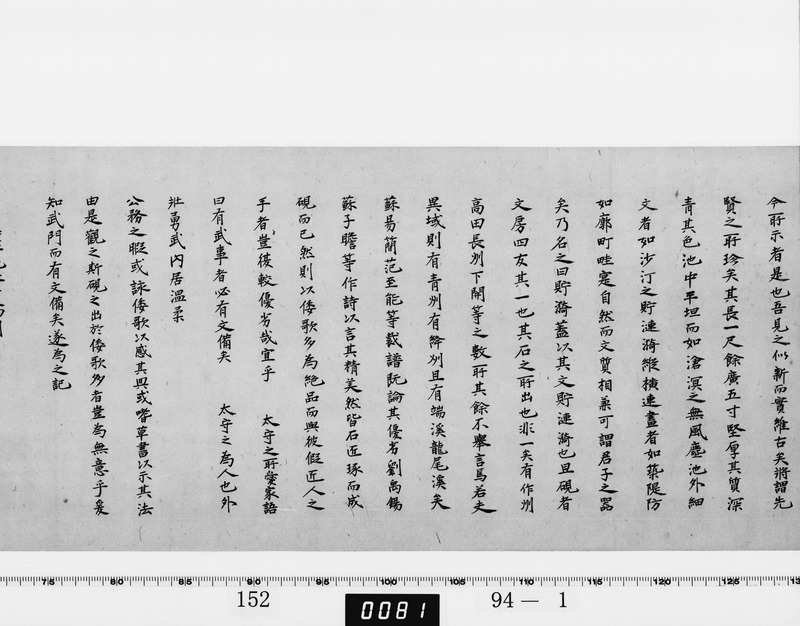 今所示者是也吾見之似新而實雖古矣將謂先
賢之所珍矣其長一尺餘廣五寸堅厚其質深
青其色池中平坦而如滄溟之無風塵池外細
文者如沙汀之貯漣漪維横連畫者如築隄防
如廓町畦寔自然而文質相兼可謂君子之器
矣乃名之曰貯漪蓋以其文貯漣漪也且硯者
文房四友其一也其石之所出也非一矣有作州
高田長州下關等之數所其餘不擧言焉若夫
異域則有青州有絳州且有端溪龍尾溪矣
蘇易簡范至能等載譜阮論其優劣劉禹錫
蘇子瞻等作詩以言其精美然皆石近琢而成
硯而已然則以倭歌多為絶品而與彼假近人之
手者豈復較優劣哉宜乎 太守之所愛家語
曰有武事者必有文備矣 太守之為人也外
壯勇武内居温柔
公務之暇或詠倭歌以感其興或嗜草書以示其法
由是觀之斯硯之出於倭歌多者豈為無意乎爰
知武門而有文備矣遂為之記
75 80 85 90 95 100 105 110 115 120 125 13
152 0081 94－1